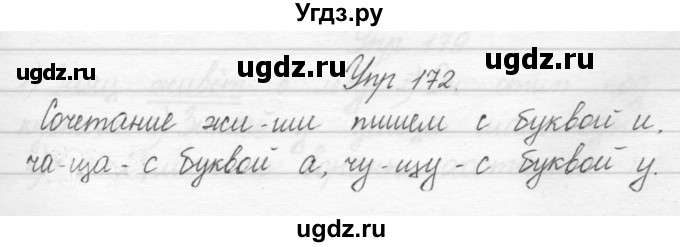 Угдз.ру
ugdz.ru ugdz.ru ugdz.ru
Упр 172.
Сочетание жи-ши пишем с буквой и,
ча-ща - с буквой а, чу-щу - с буквой у.
ugdz.ru ugdz.ru
ugdz.ru